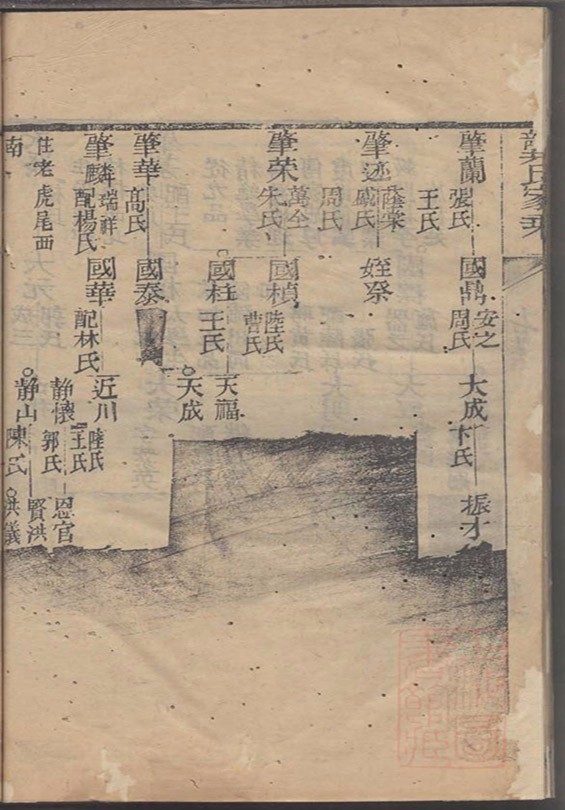 氏家乘
肇蘭 張氏 國鼎 安之 周氏 大成 卞氏 振才
王氏
肇迹 蔭棠 戚氏 姪祭
周氏
肇荣 萬全 朱氏 國楨 陸氏 曹氏
國柱 王氏 天福
天成
肇華 高氏 國泰
肇麟 瑞祥 配楊氏 國華 配林氏 近川 陸氏 王氏
静懷 郭氏 恩官
賢洪
住老虎尾西 静山 陳氏 洪儀
南